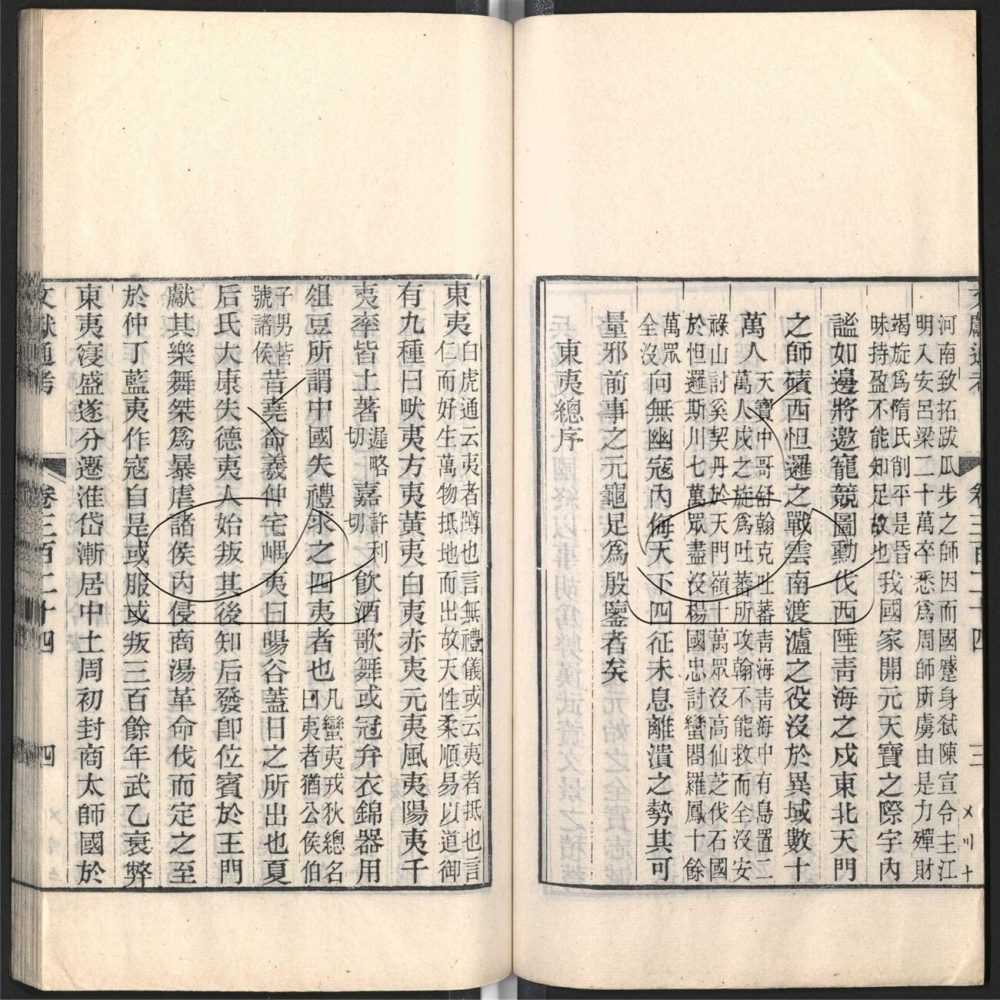 河南致拓跋瓜步之師因而國蹙身弒陳宣令主江
明入安呂梁二十萬卒悉爲周師所虜由是力殫財
竭旋爲惰氏削平是昏
昧持盈不能知足故也
我國家開元天寶之際宇內
謐如邊將邀寵競圖勳伐西陲靑海之戍東北天門
之師磧西怛邏之戰雲南渡瀘之役沒於異域數十
萬人
天寶中哥舒翰克吐蕃靑海靑海中有島置二
萬人戍之旋爲吐蕃所攻翰不能救而全沒安
祿山討奚契丹於天門嶺十萬眾盡沒高仙芝伐石國
於怛邏斯川七萬眾盡沒楊國忠討蠻閤羅鳳十餘
萬眾
全沒
向無幽寇內侮天下四征未息離潰之勢其可
量邪前事之元龜足爲殷鑒者矣
東夷總序
東夷
白虎通云夷者蹲也言無禮儀或云夷者抵也言
仁而好生萬物抵地而出故天性柔順易以道御
有九種曰畎夷方夷黃夷白夷赤夷元夷風夷陽夷千
夷率皆土著
遲略
切
嘉
許利
切
飮酒歌舞或冠弁衣錦器用
俎豆所謂中國失禮求之四夷者也
凡蠻夷戎狄總名
曰夷者猶公侯伯
子男皆
號諸侯
昔堯命羲仲宅嵎夷曰暘谷蓋日之所出也夏
后氏大康失德夷人始叛其後知后發卽位賓於王門
獻其樂舞桀爲暴虐諸侯內侵商湯革命伐而定之至
於仲丁藍夷作寇自是或服或叛三百餘年武乙衰弊
東夷寖盛遂分遷淮岱漸居中土周初封商太師國於
文獻通考
卷三百二十四
四